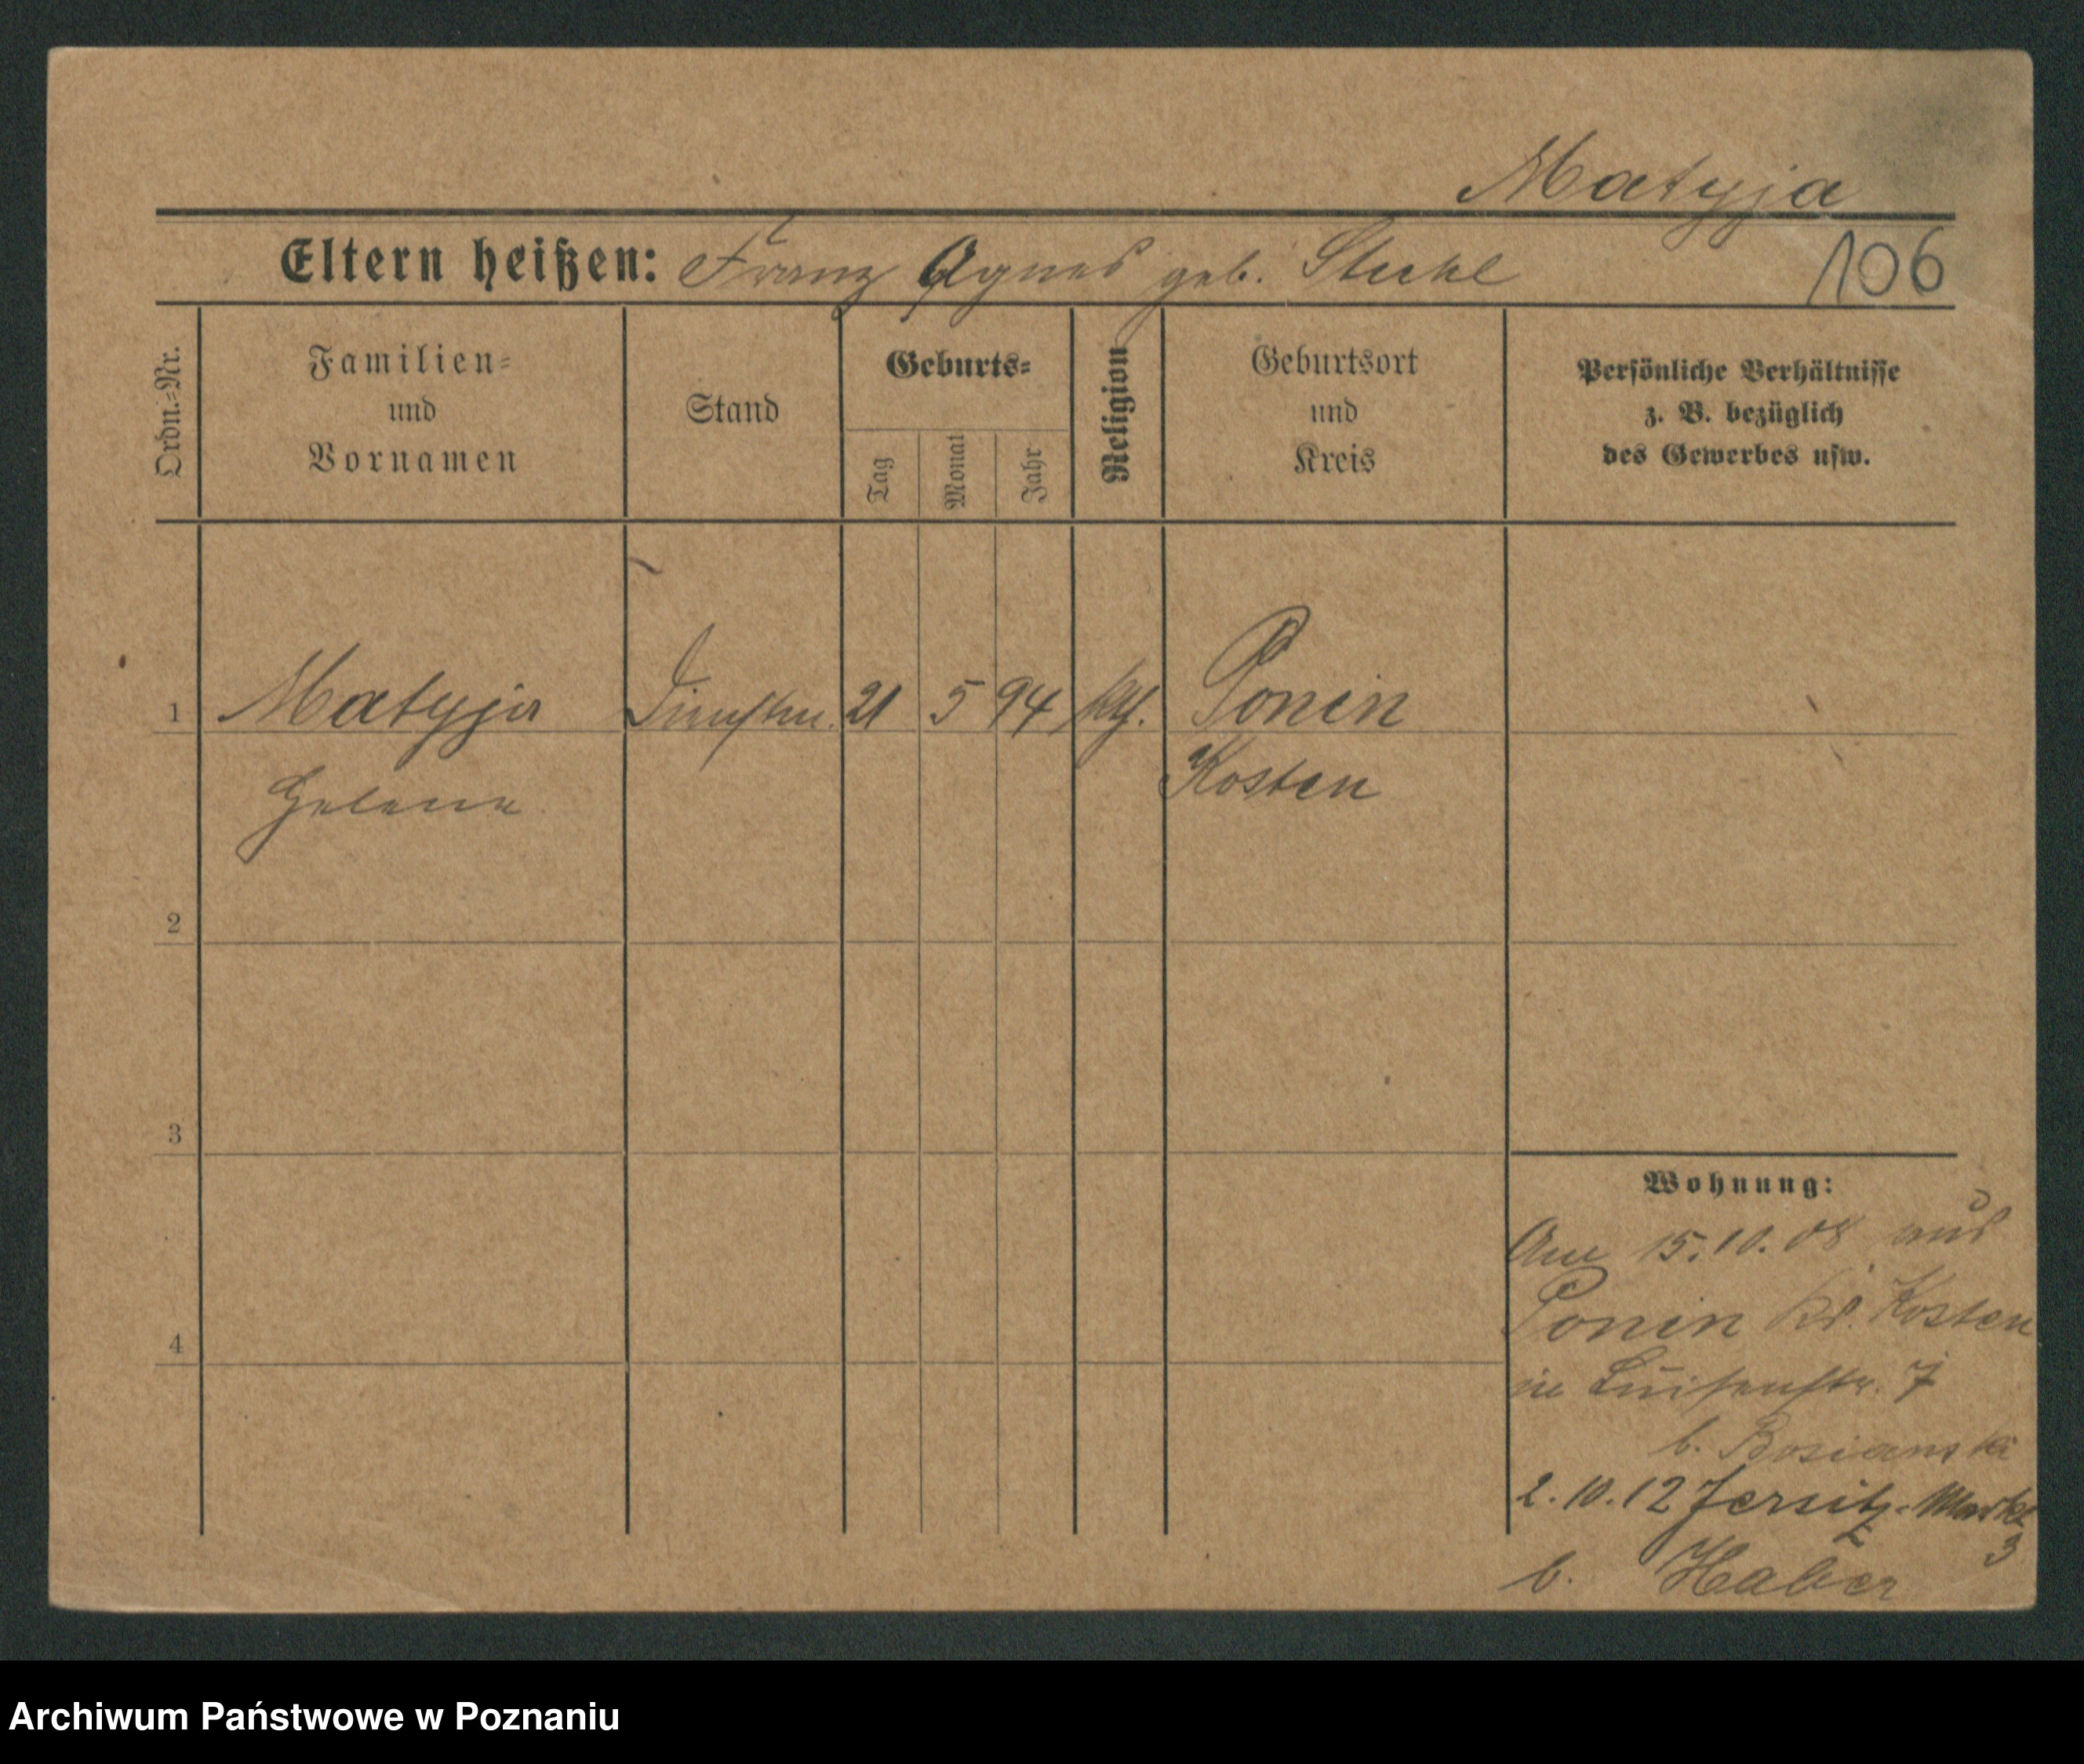 Matyja
Eltern heißen: Franz Agnes geb. Stuhl
106
Ordn.-Nr.
Familien-
und
Vornamen
Stand
Geburts-
Tag
Monat
Jahr
Religion
Geburtsort
und
Kreis
Persönliche Verhältnisse
z. B. bezüglich
des Gewerbes usw.
1 Matyja Dienstm. 21 5 94 kth. Ponin
Helena Kosten
2
3
4
Wohnung:
Am 15.10.08 aus
Ponin Kr. Kosten
in Luisenstr. 7
b. Bosianski
2.10.12 Jersitz-Markt
3
b. Haber
Archiwum Państwowe w Poznaniu